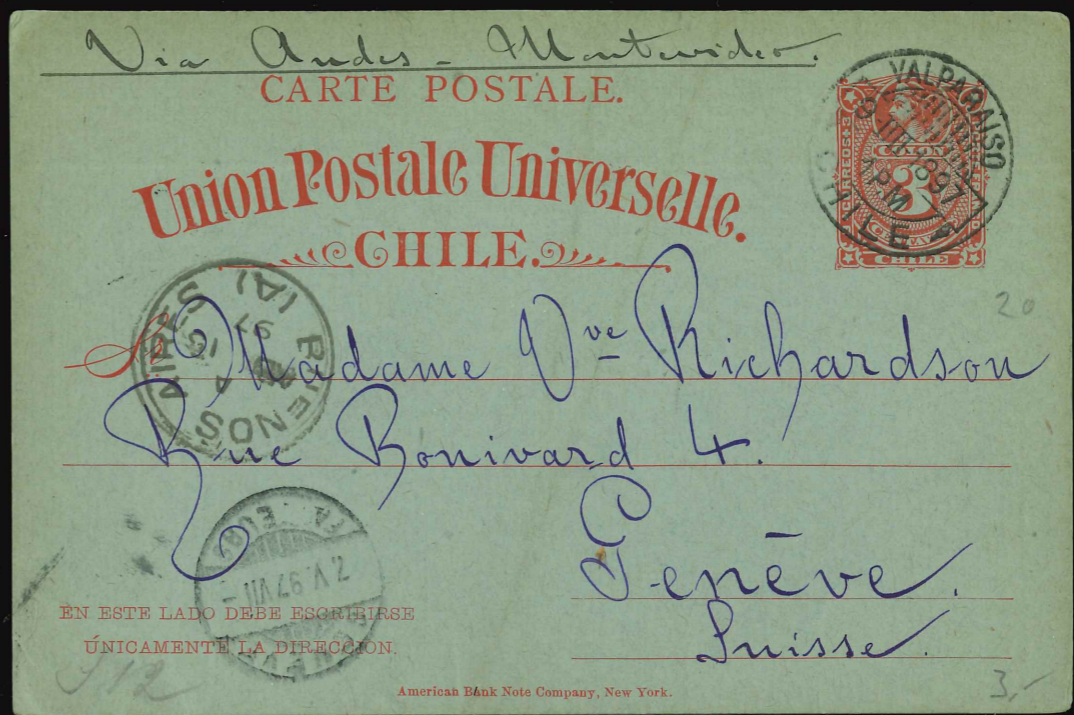 Via Andes - Montevideo.
CARTE POSTALE.
Union Postale Universelle.
CHILE.
VALPARAISO
1 PM
CHILE
CORREOS
COLON
CENTAVOS
CHILE
20
BUENOS AIRES (A)
97
S. Madame Vve Richardson
Rue Bonivard 4.
Genève.
Suisse.
7.V.97.VII-
EN ESTE LADO DEBE ESCRIBIRSE
ÚNICAMENTE LA DIRECCION.
American Bank Note Company, New York.
3,-